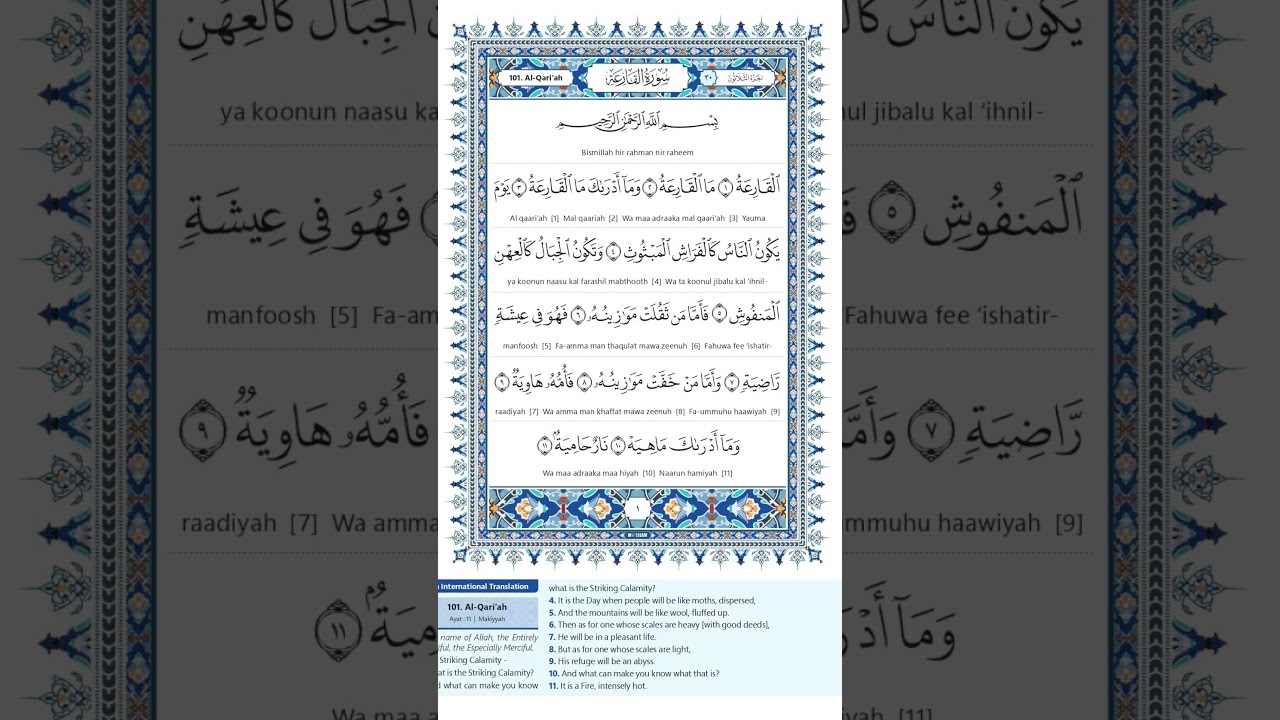 101. Al-Qari'ah
سُورَةُ القَارِعَةِ
٣٠
الجُزْءُ الثَّلَاثُونَ
بِسْمِ ٱللَّهِ ٱلرَّحْمَٰنِ ٱلرَّحِيمِ
Bismillah hir rahman nir raheem
ٱلْقَارِعَةُ ۝١ مَا ٱلْقَارِعَةُ ۝٢ وَمَآ أَدْرَىٰكَ مَا ٱلْقَارِعَةُ ۝٣ يَوْمَ
Al qaari'ah [1] Mal qaariah [2] Wa maa adraaka mal qaari'ah [3] Yauma
يَكُونُ ٱلنَّاسُ كَٱلْفَرَاشِ ٱلْمَبْثُوثِ ۝٤ وَتَكُونُ ٱلْجِبَالُ كَٱلْعِهْنِ
ya koonun naasu kal farashil mabthooth [4] Wa ta koonul jibalu kal 'ihnil-
ٱلْمَنفُوشِ ۝٥ فَأَمَّا مَن ثَقُلَتْ مَوَٰزِينُهُۥ ۝٦ فَهُوَ فِى عِيشَةٍ
manfoosh [5] Fa-amma man thaqulat mawa zeenuh [6] Fahuwa fee 'ishatir-
رَّاضِيَةٍ ۝٧ وَأَمَّا مَنْ خَفَّتْ مَوَٰزِينُهُۥ ۝٨ فَأُمُّهُۥ هَاوِيَةٌ ۝٩
raadiyah [7] Wa amma man khaffat mawa zeenuh [8] Fa-ummuhu haawiyah [9]
وَمَآ أَدْرَىٰكَ مَا هِيَهْ ۝١٠ نَارٌ حَامِيَةٌۢ ۝١١
Wa maa adraaka maa hiyah [10] Naarun hamiyah [11]
١
International Translation
101. Al-Qari'ah
Ayat : 11 | Makiyyah
name of Allah, the Entirely
the Especially Merciful.
Striking Calamity -
is the Striking Calamity?
what can make you know
what is the Striking Calamity?
4. It is the Day when people will be like moths, dispersed,
5. And the mountains will be like wool, fluffed up.
6. Then as for one whose scales are heavy [with good deeds],
7. He will be in a pleasant life.
8. But as for one whose scales are light,
9. His refuge will be an abyss.
10. And what can make you know what that is?
11. It is a Fire, intensely hot.